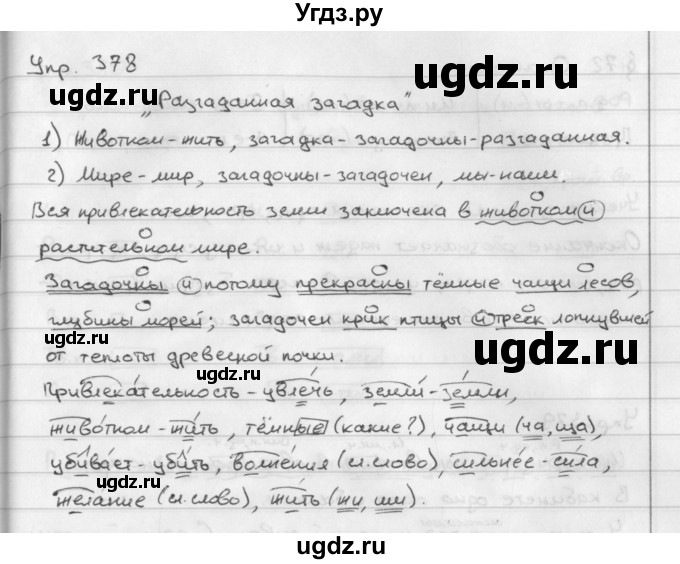 Угдз.ру
Упр. 378
ugdz.ru
ugdz.ru
"Разгаданная загадка"
1) Животном-жить, загадка-загадочны-разгаданная.
2) Мире-мир, загадочны-загадочен, мы-наши.
Вся привлекательность земли заключена в животном и
растительном мире.
Загадочны и потому прекрасны тёмные чащи лесов,
глубины морей; загадочен крик птицы и треск лопнувшей
ugdz.ru
от теплоты древесной почки.
ugdz.ru
Привлекательность-увлечь, земли-земли,
животном-жить, тёмные (какие?), чащи (ча, ща),
убивает-убить, волнения (сл.слово), сильнее-сила,
желание (сл.слово), жить (жи, ши).
ugdz.ru
ugdz.ru
ugdz.ru